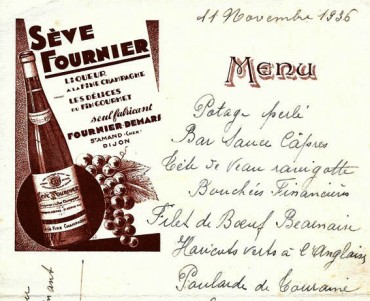 11 Novembre 1936
SÈVE
FOURNIER
LIQUEUR
A LA FINE CHAMPAGNE
LES DÉLICES
DU FIN GOURMET
seul fabricant
FOURNIER-DEMARS
ST AMAND (CHER)
DIJON
MENU
Potage perlé
Bar Sauce Câpres
Tête de Veau ravigotte
Bouchées Financières
Filet de Bœuf Bearnaise
Haricots verts à l'Anglaise
Poularde de Touraine